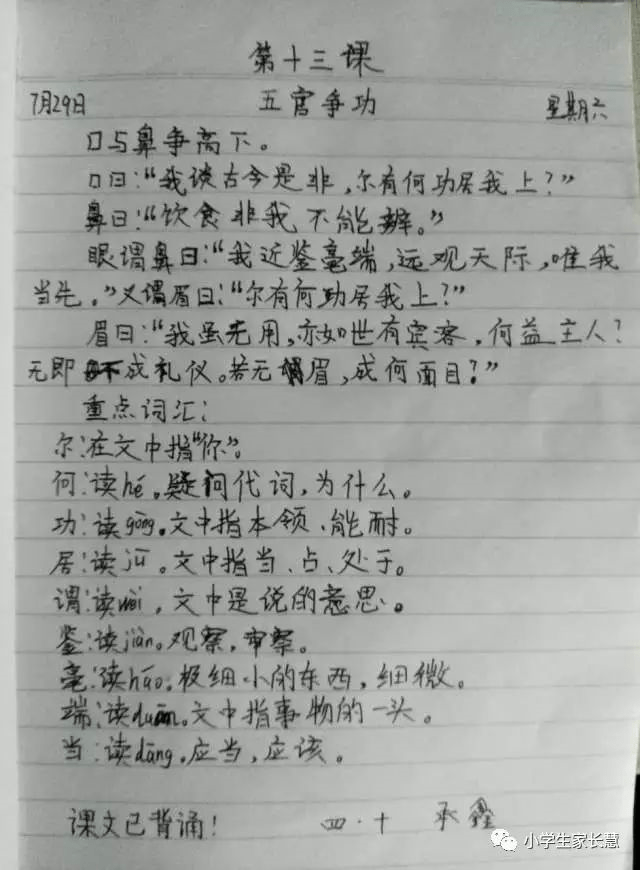 第十三课
7月29日 五官争功 星期六
口与鼻争高下。
口曰:“我谈古今是非,尔有何功居我上?”
鼻曰:“饮食非我不能辨。”
眼谓鼻曰:“我近鉴毫端,远观天际,唯我
当先。”又谓眉曰:“尔有何功居我上?”
眉曰:“我虽无用,亦如世有宾客,何益主人?
无即不成礼仪。若无眉,成何面目?”
重点词汇:
尔:在文中指“你”。
何:读hé。疑问代词,为什么。
功:读gōng。文中指本领、能耐。
居:读jū。文中指当、占、处于。
谓:读wèi,文中是说的意思。
鉴:读jiàn。观察,审察。
毫:读háo。极细小的东西,细微。
端:读duān。文中指事物的一头。
当:读dāng。应当,应该。
课文已背诵! 四·十 承鑫
小学生家长慧